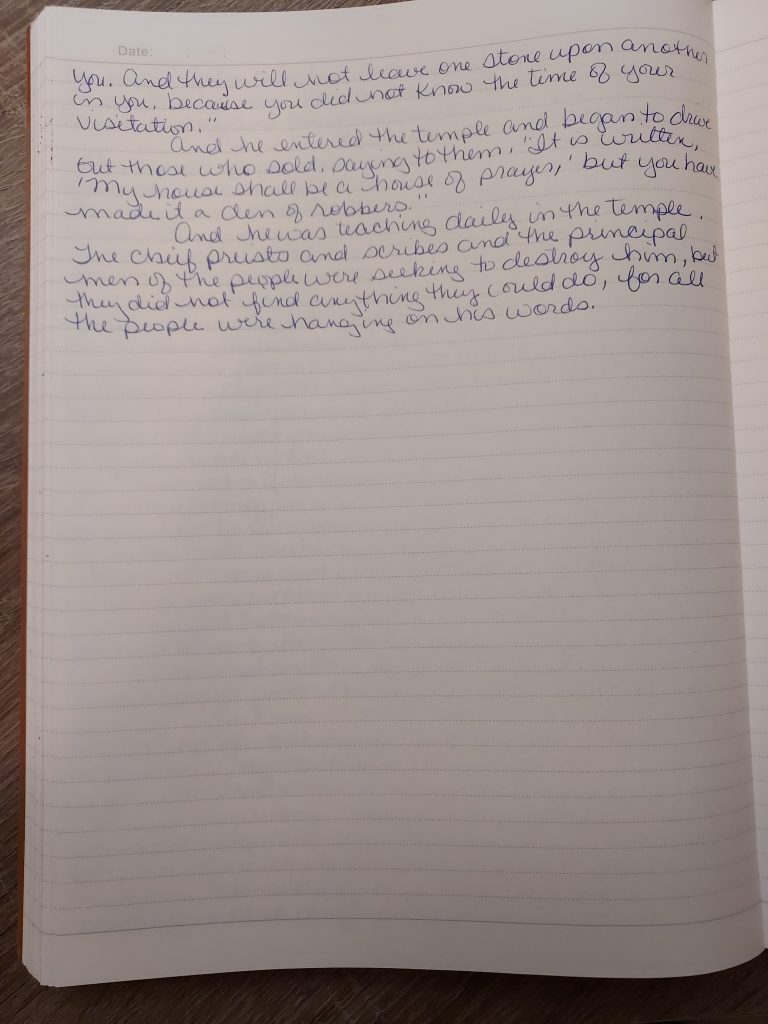 Date:
you. And they will not leave one stone upon another
in you, because you did not know the time of your
visitation."
And he entered the temple and began to drive
out those who sold, saying to them, "It is written,
'My house shall be a house of prayer,' but you have
made it a den of robbers."
And he was teaching daily in the temple.
The chief priests and scribes and the principal
men of the people were seeking to destroy him, but
they did not find anything they could do, for all
the people were hanging on his words.